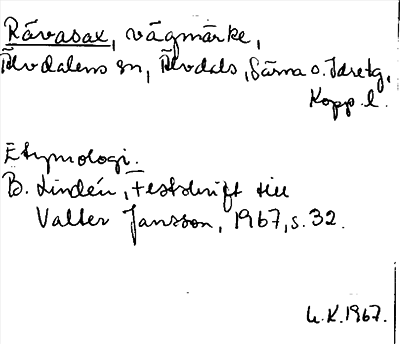 Rävasax, vägmärke,
Älvdalens sn, Älvdals, Särna o. Idre tg,
Kopp. l.
Etymologi.
B. Lindén, Festskrift till
Valter Jansson, 1967, s. 32.
U.K. 1967.